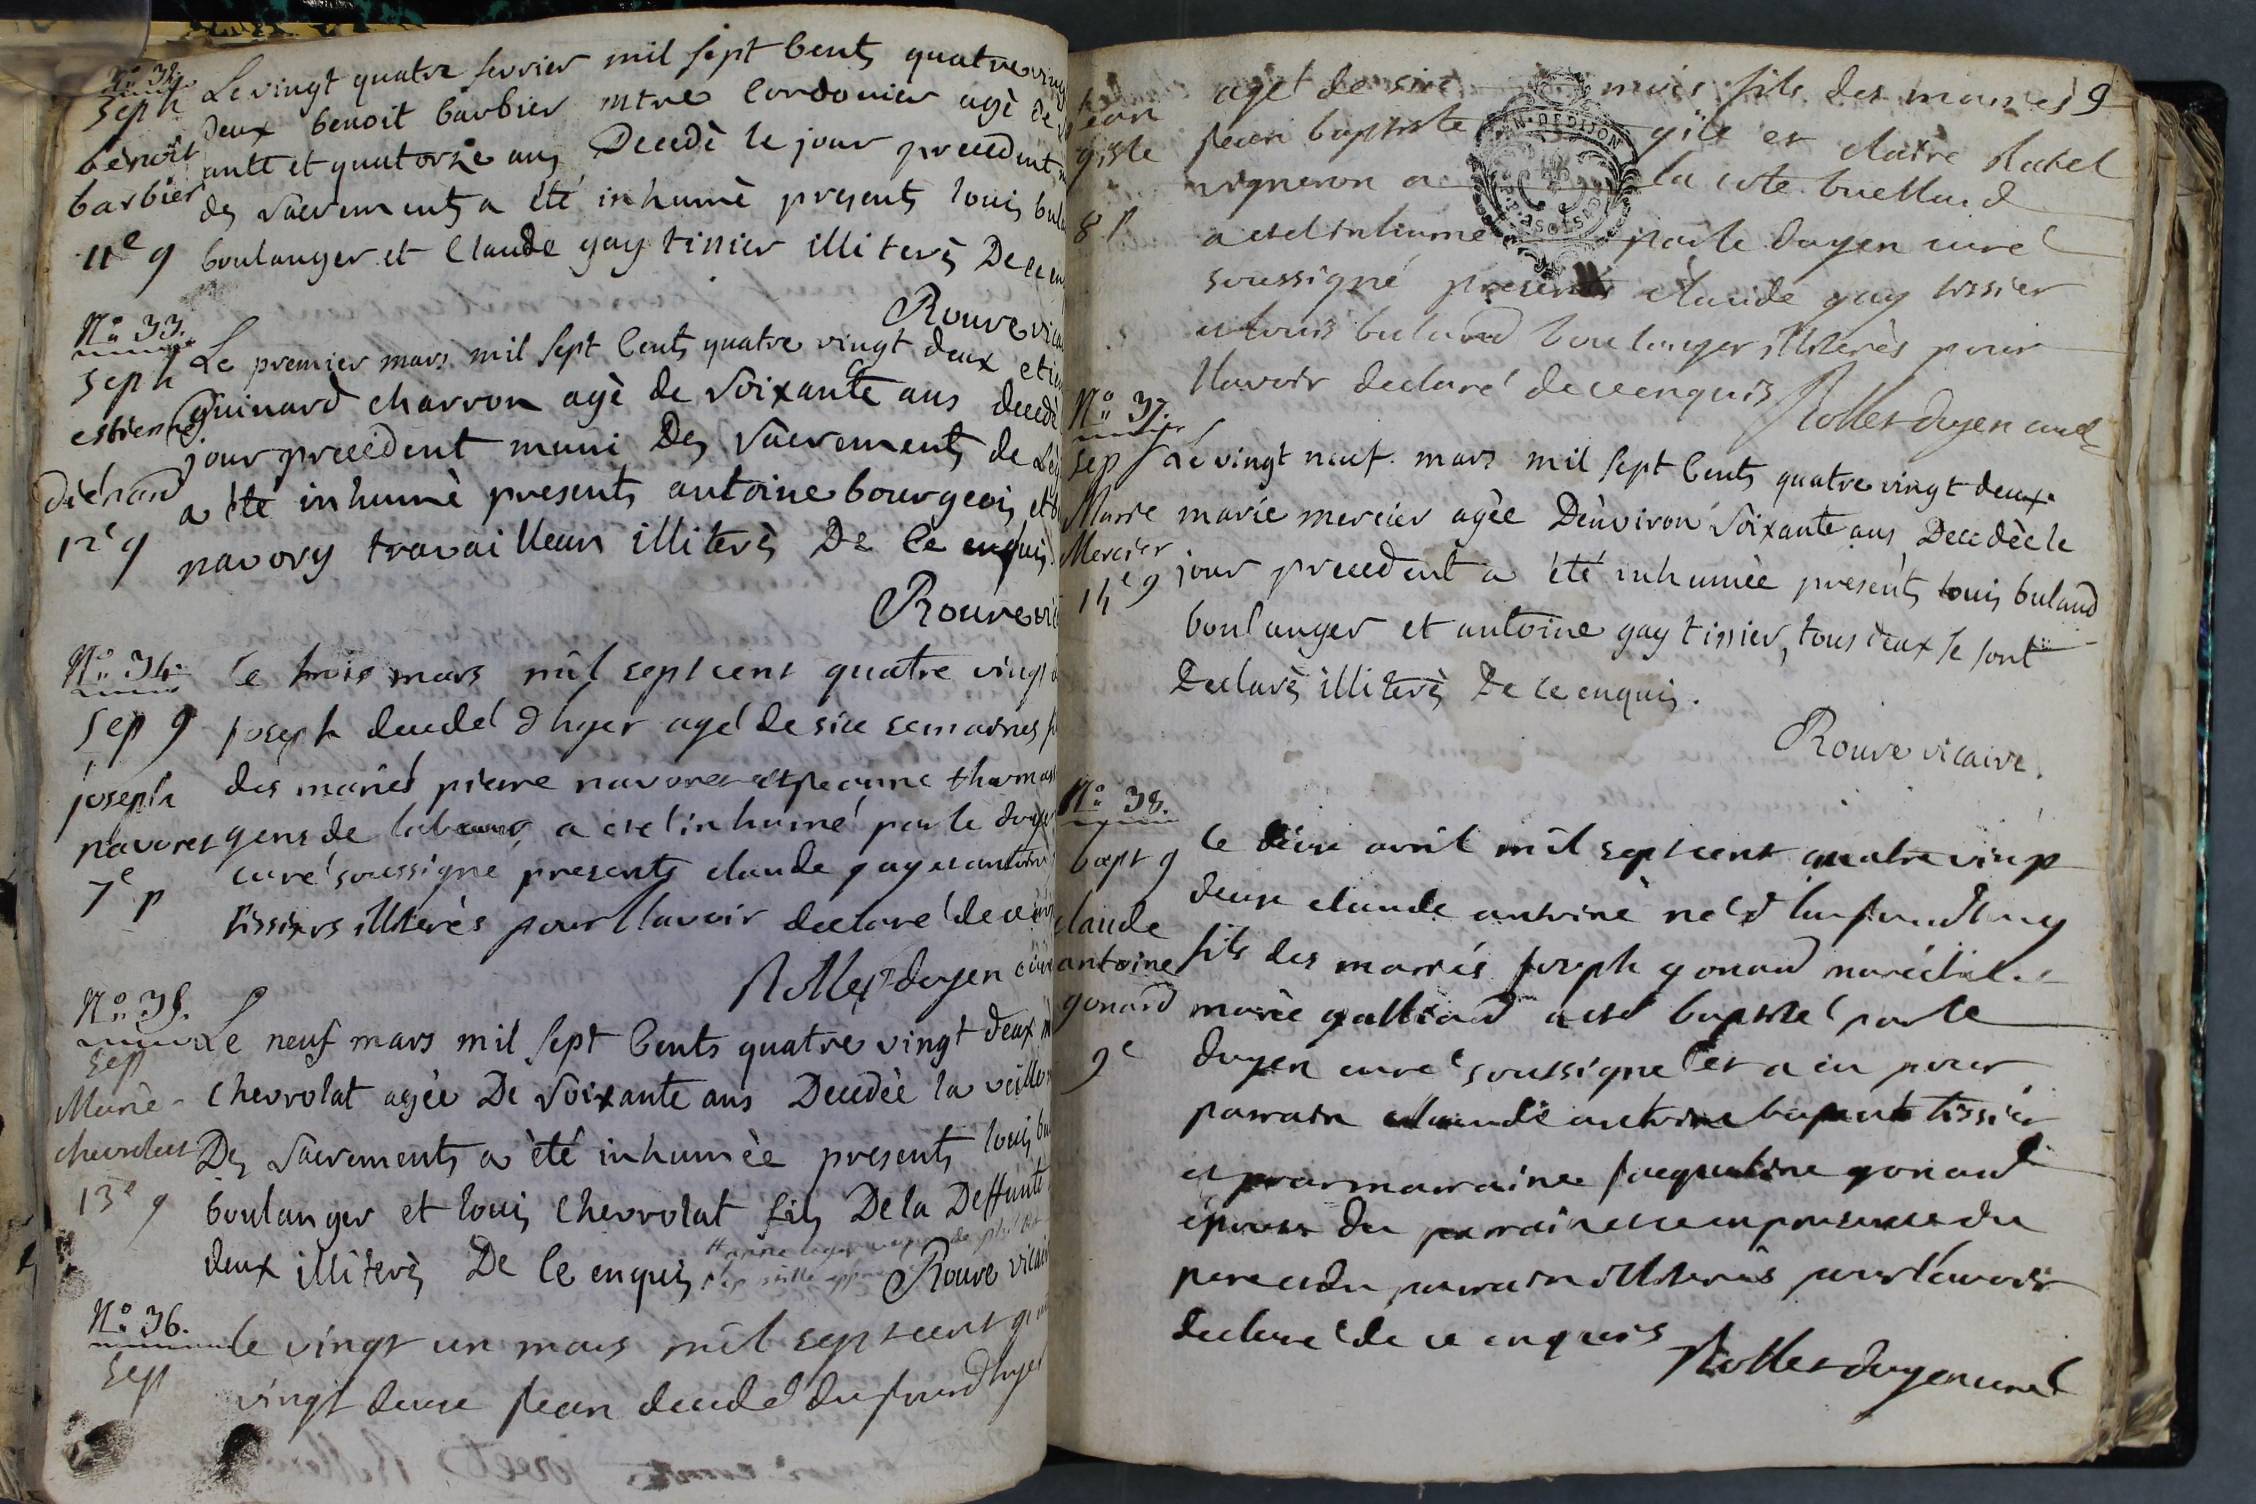 No 32.
Seph
bénoit
barbier
11e g
Le vingt quatre fevrier mil sept Cents quatre ving
deux benoit barbier mtre Cordonier agè de
ante et quatorze ans Decedè le jour precedent
des Sacrements a èté inhumè presents louis bul
boulanger et Claude gay tissier illiterès De ce en
Rouve vica
No 33.
Seph
estienne
12e g
Le premier mars mil sept Cents quatre vingt deux eti
guinard charron agè de Soixante ans decedè
jour precedent muni Des Sacrements de
a èté inhumè presents antoine bourgeois et
navory travailleurs illiterès De Ce enquis
Rouve vi
No 34.
Sep g
joseph
navoret
7e p
le trois mars mil sept cent quatre vingt
joseph decedé d hyer agé de six semaines
des mariés pierre navoret et jeanne thomas
gens de labeur, a eté inhumé par le doyen
curé soussigné, presents claude gay et antoine
tissiers illiterés pour l'avoir declaré de ce
Rollet doyen curé
No 35.
Sep
Marie
chevrolat
13e g
Le neuf mars mil sept Cents quatre vingt deux
Chevrolat agèe De Soixante ans Decedèe la veille
Des Sacrements a èté inhumèe presents louis bu
boulanger et louis Chevrolat fils De la Deffunte
deux illiterès De Ce enquis
Rouve vicair
No 36.
Sep
le vingt un mars mil sept cent
vingt deux jean decedé du jour d hyer
9
jean
gille
8 p
agé de six mois fils des mariés
jean baptiste gile et claire
vigneron a la cote
a eté inhumé par le doyen curé
soussigné presents claude gay tissier
et louis buland boulanger illiterés pour
l'avoir declaré de ce enquis
Rollet doyen curé
No 37.
Sep
Marie
Mercier
14e g
Le vingt neuf mars mil sept Cents quatre vingt deux
marie mercier agèe D'environ Soixante ans Decedèe le
jour precedent a èté inhumèe presents louis buland
boulanger et antoine gay tissier, tous deux se sont
Declarès illiterès De Ce enquis.
Rouve vicaire.
No 38.
bapt g
claude
antoine
gonard
9e
le avril mil sept cent quatre vingt
deux claude antoine né
fils des mariés joseph gonard maréchal et
marie galliard a eté baptisé par le
doyen curé soussigné et a eu pour
parrain claude antoine tissier
et pour marraine jacqueline gonard
epouse du parrain et ce en presence du
pere et du parrain illiterés pour l'avoir
declaré de ce enquis
Rollet doyen curé